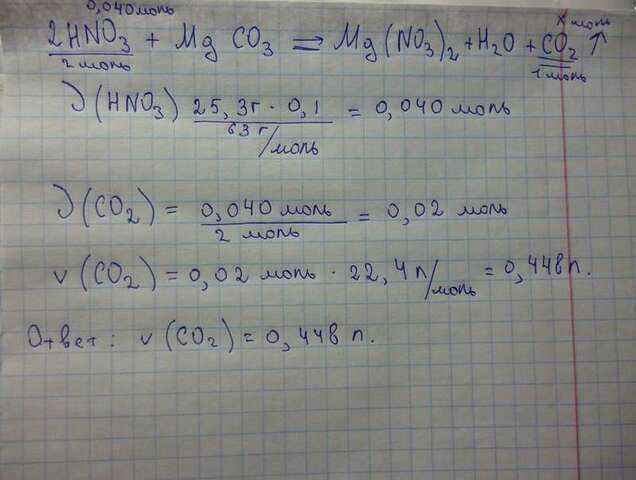 0,040 моль
x моль
2HNO₃ + MgCO₃ = Mg(NO₃)₂ + H₂O + CO₂↑
2 моль
1 моль
ν(HNO₃) 25,3г · 0,1 / 63 г/моль = 0,040 моль
ν(CO₂) = 0,040 моль / 2 моль = 0,02 моль
v(CO₂) = 0,02 моль · 22,4 л/моль = 0,448 л.
Ответ: v(CO₂) = 0,448 л.